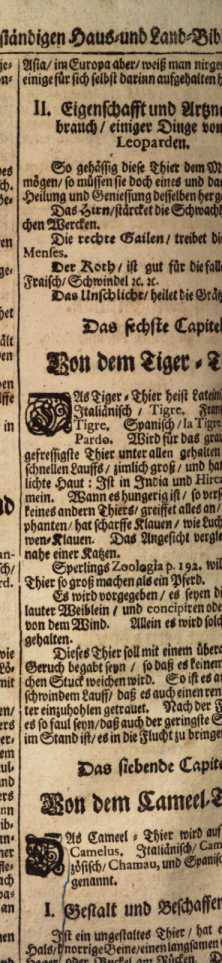 ständigen Haus-und Land-Bib
Asia/ im Europa aber/ weiß man nirge
einige für sich selbst darinn aufgehalten h
II. Eigenschafft und Artzne
brauch / einiger Dinge von
Leoparden.
So gehässig diese Thier dem M
mögen/ so müssen sie doch eines und da
Heilung und Geniessung desselben herg
Das Hirn/stärcket die Schwach
chen Wercken.
Die rechte Gailen/ treibet di
Menses.
Der Koth/ ist gut für die falle
Fraisch/ Schwindel ꝛc. ꝛc.
Das Unschlicht/ heilet die Grätz
Das sechste Capitel
Von dem Tiger-T
DAs Tiger-Thier heist Latein
Italiänisch / Tigre, Fran
Tigre, Spanisch/ la Tigre
Pardo. Wird für das grau
gefressigste Thier unter allen gehalten
schnellen Lauffs/ zimlich groß/ und hat
lichte Haut: Ist in India und Hirca
mein. Wann es hungerig ist/ so vers
keines andern Thiers/ greiffet alles an/
phanten/ hat scharffe Klauen/ wie Luchs
wen-Klauen. Das Angesicht vergle
nahe einer Katzen.
Sperlings Zoologia p. 192. will
Thier so groß machen als ein Pferd.
Es wird vorgegeben/ es seyen di
lauter Weiblein / und concipiren ode
von dem Wind. Allein es wird solch
gehalten.
Dieses Thier soll mit einem übera
Geruch begabt seyn / so daß es keinem
chen Stuck weichen wird. So ist es au
schwindem Lauff/ daß es auch einen ren
ter einzuhohlen getrauet. Nach der F
es so faul seyn/ daß auch der geringste S
im Stand ist/ es in die Flucht zu bringen
Das siebende Capite
Von dem Cameel-T
DAs Cameel-Thier wird auf
Camelus, Italiänisch/ Cam
zösisch/ Chamau, und Spanisch
genannt.
I. Gestalt und Beschaffen
Ist ein ungestaltes Thier / hat e
Hals/ knorrige Beine/ einen langsamen